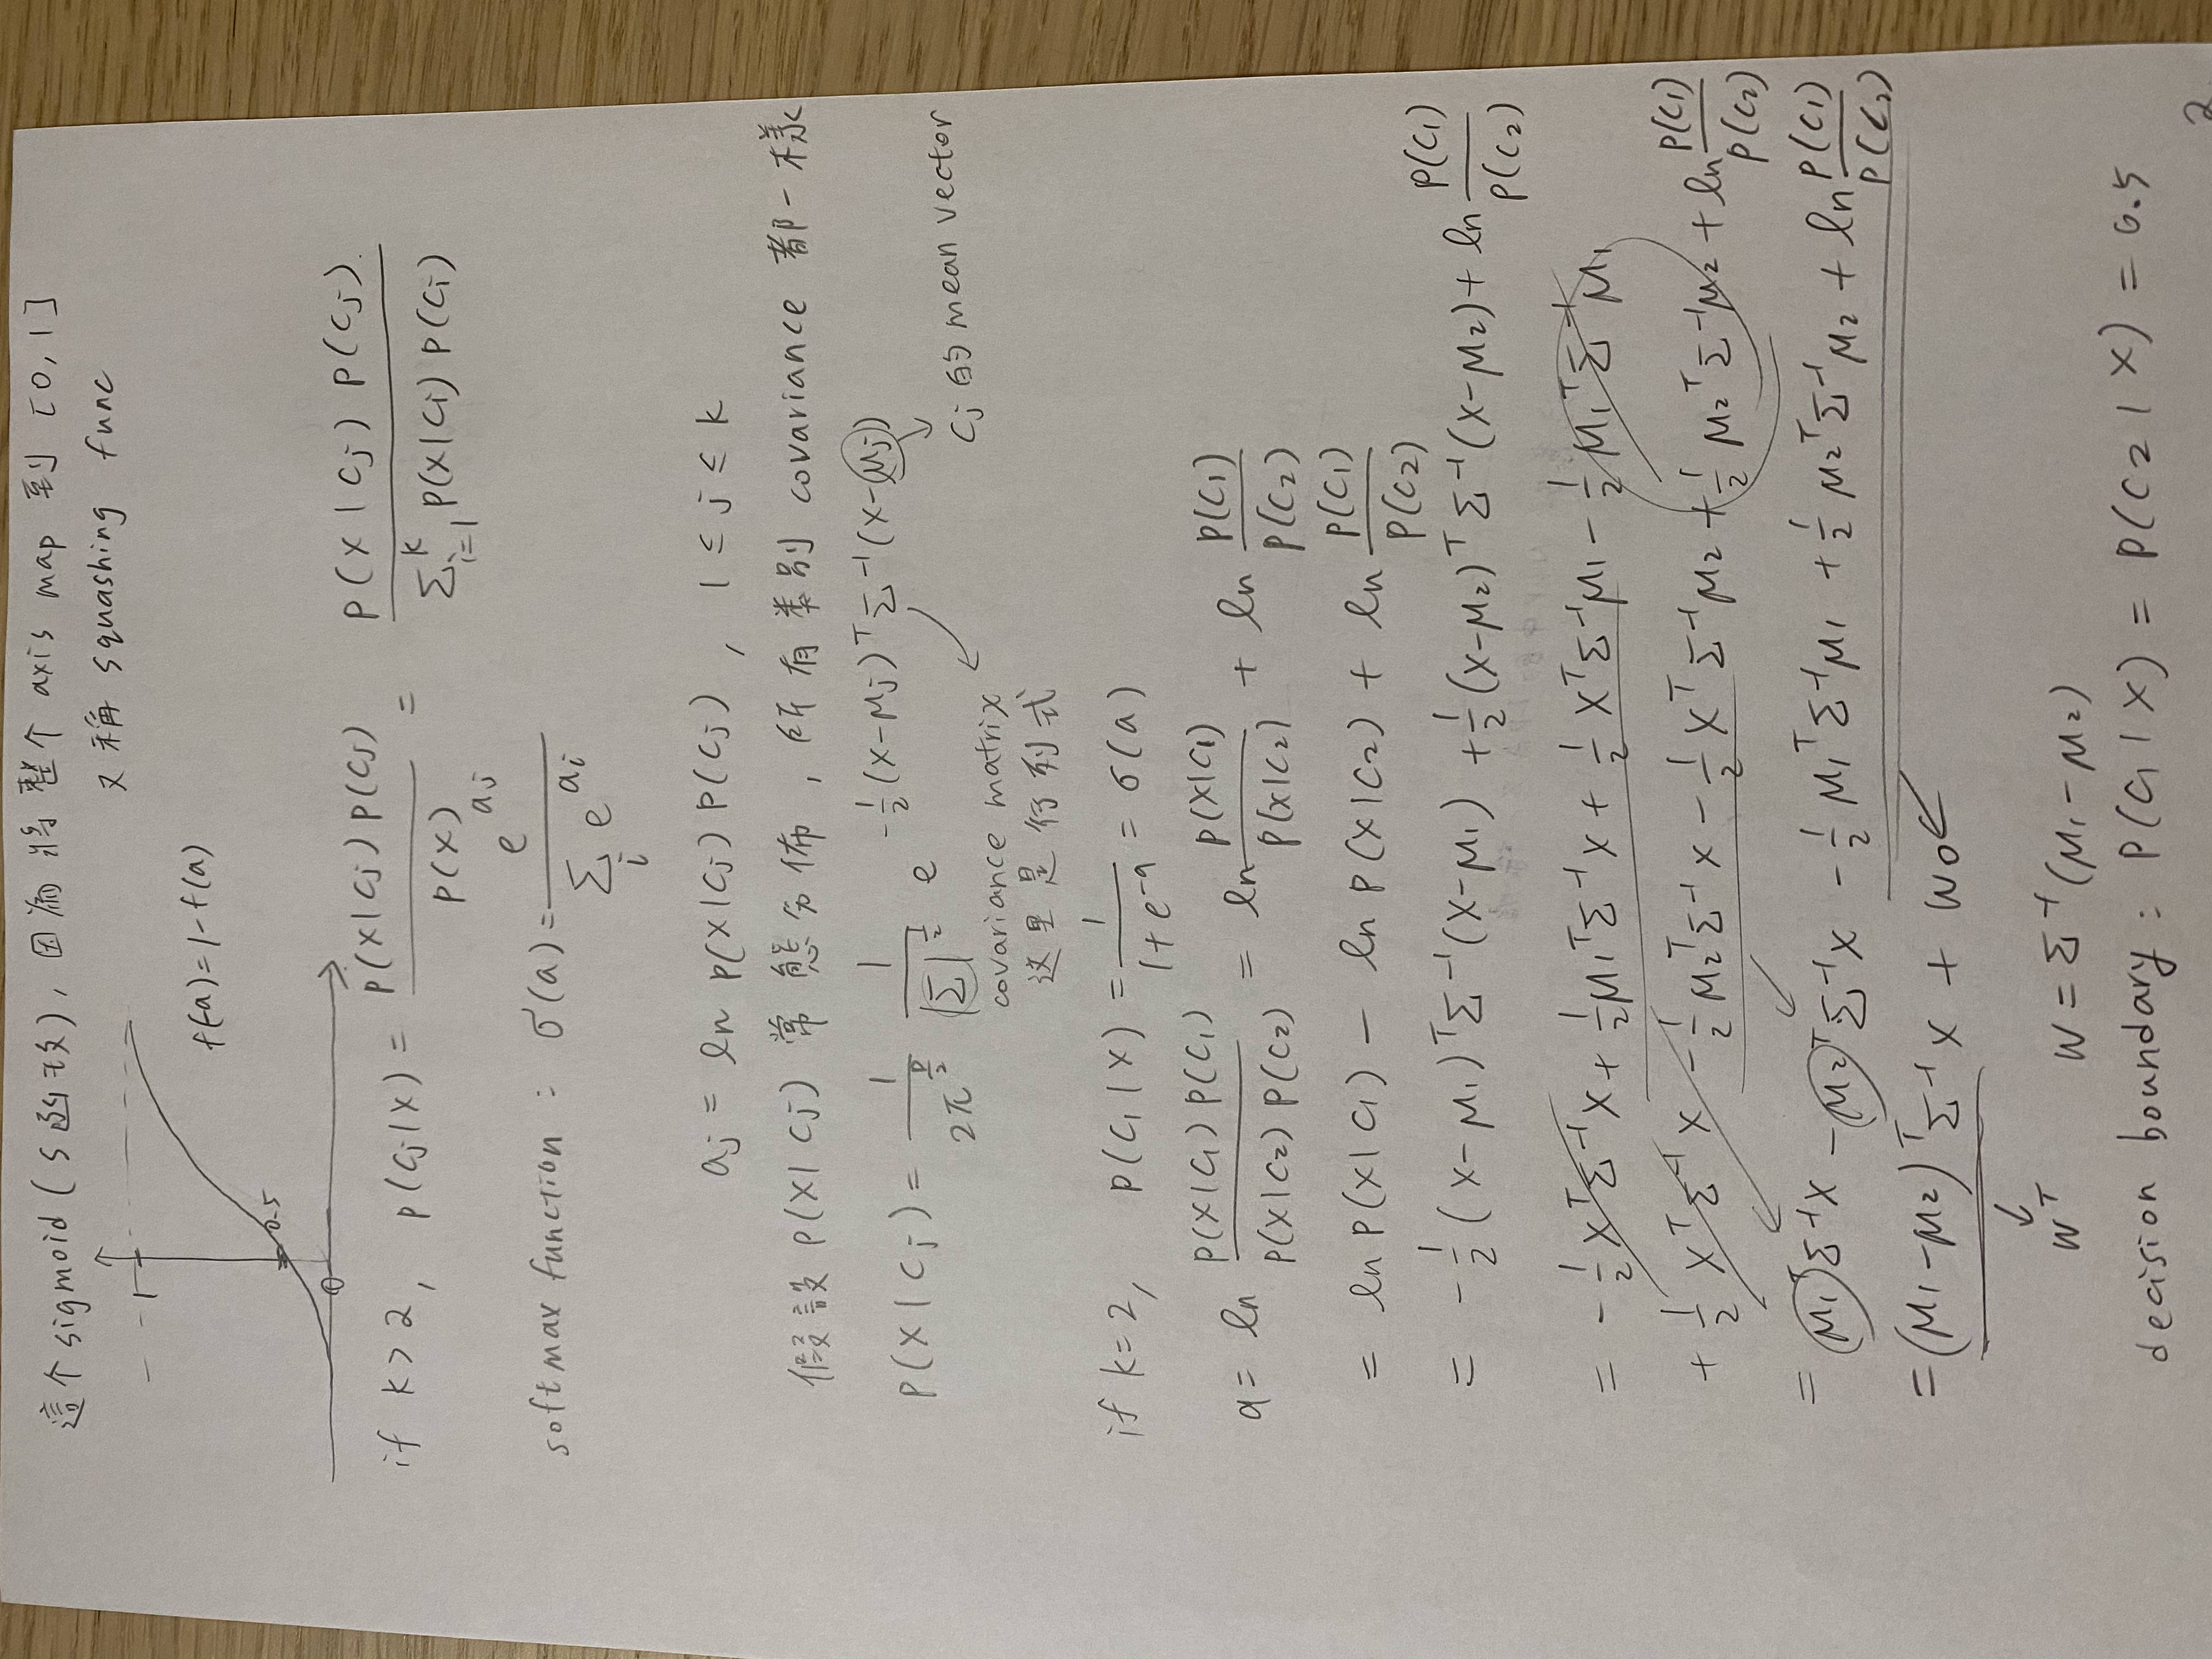 這个 sigmoid ( S 函数 ), 因為 將 整个 axis map 到 [0, 1]
又稱 squashing func
1
f(-a) = 1 - f(a)
0.5
0
if k > 2, p(Cj|X) = p(X|Cj) p(Cj) / p(X) = p(X|Cj) p(Cj). / Σ_{i=1}^{k} p(X|Ci) p(Ci)
softmax function : σ(a) = e^{aj} / Σ_i e^{ai}
aj = ln p(X|Cj) p(Cj) , 1 ≤ j ≤ k
假設 p(X|Cj) 常態分佈 , 所有类別 covariance 都一樣
p(X|Cj) = 1 / 2π^{p/2} 1 / |Σ|^{1/2} e^{-1/2 (X-μj)^T Σ^{-1} (X-μj)}
Cj 的 mean vector
covariance matrix
这里是行列式
if k = 2, p(C1|X) = 1 / (1 + e^{-a}) = σ(a)
a = ln p(X|C1) p(C1) / p(X|C2) p(C2) = ln p(X|C1) / p(X|C2) + ln p(C1) / p(C2)
= ln p(X|C1) - ln p(X|C2) + ln p(C1) / p(C2)
= -1/2 (X-μ1)^T Σ^{-1} (X-μ1) + 1/2 (X-μ2)^T Σ^{-1} (X-μ2) + ln p(C1) / p(C2)
= -1/2 X^T Σ^{-1} X + 1/2 μ1^T Σ^{-1} X + 1/2 X^T Σ^{-1} μ1 - 1/2 μ1^T Σ^{-1} μ1
+ 1/2 X^T Σ^{-1} X - 1/2 μ2^T Σ^{-1} X - 1/2 X^T Σ^{-1} μ2 + 1/2 μ2^T Σ^{-1} μ2 + ln p(C1) / p(C2)
= μ1^T Σ^{-1} X - μ2^T Σ^{-1} X - 1/2 μ1^T Σ^{-1} μ1 + 1/2 μ2^T Σ^{-1} μ2 + ln p(C1) / p(C2)
= (μ1 - μ2)^T Σ^{-1} X + w0
w^T W = Σ^{-1} (μ1 - μ2)
decision boundary : P(C1|X) = P(C2|X) = 0.5
2